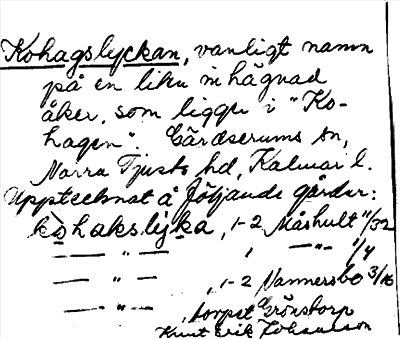 Kohagslyckan, vanligt namn
på en liten inhägnad
åker, som ligger i "Ko-
hagen". Gärdserums sn,
Norra Tjusts hd, Kalmar l.
Upptecknat å följande gårdar:
kòhakslyka, 1-2 Måshult 11/32
— " — , — " — 1/4
— " — , 1-2 Nannersbo 3/16
— " — , torpet Grönstorp
Knut Erik Johansson